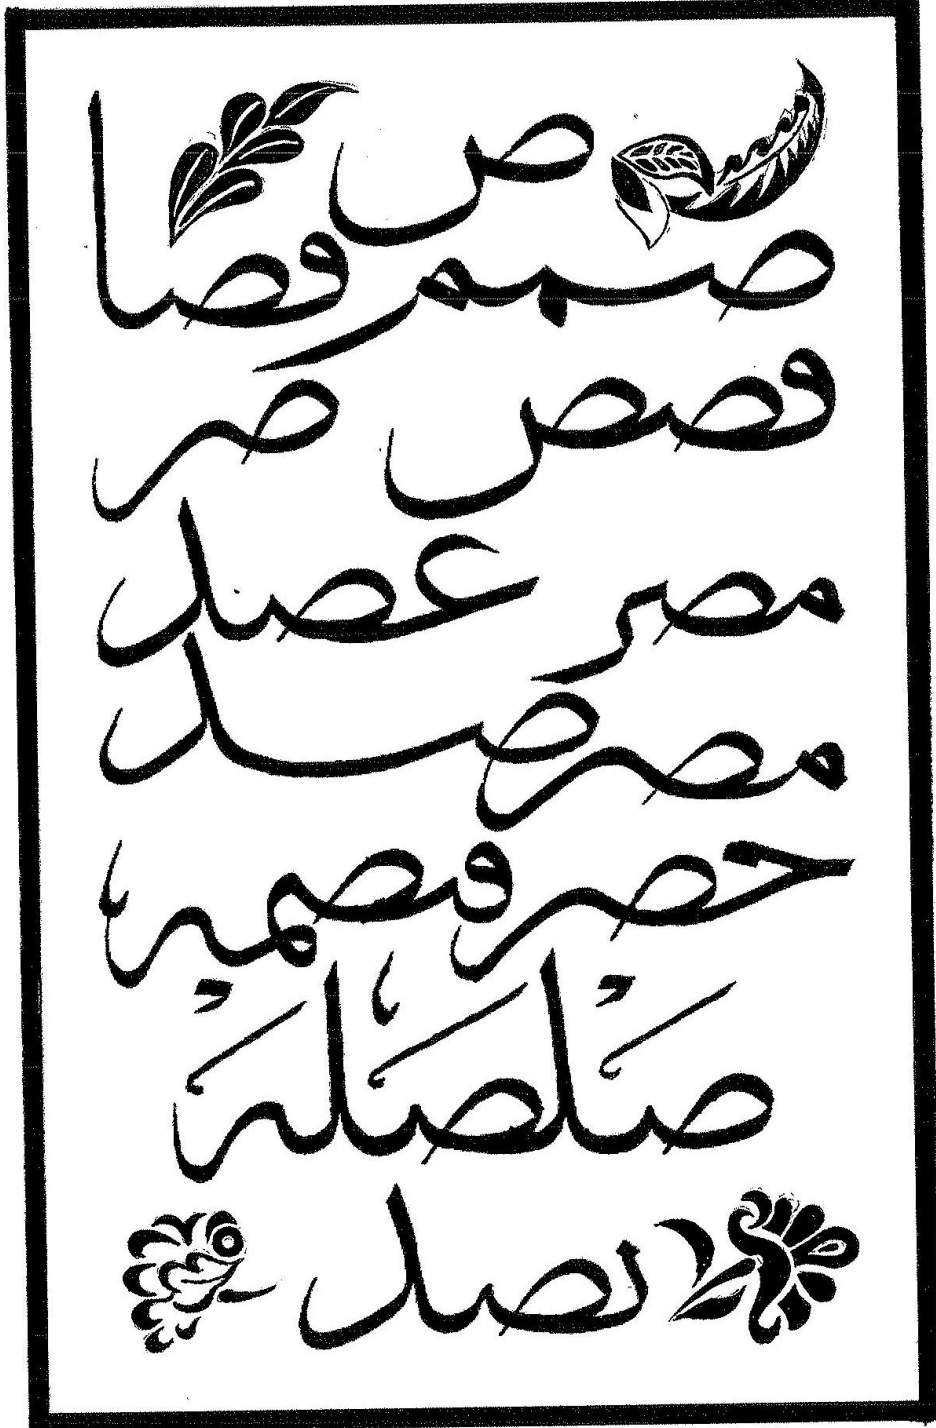 ص
صمم فصا
فصص صر
مصر عصد
مصر صد
حصر فصمه
صلصله
نصد